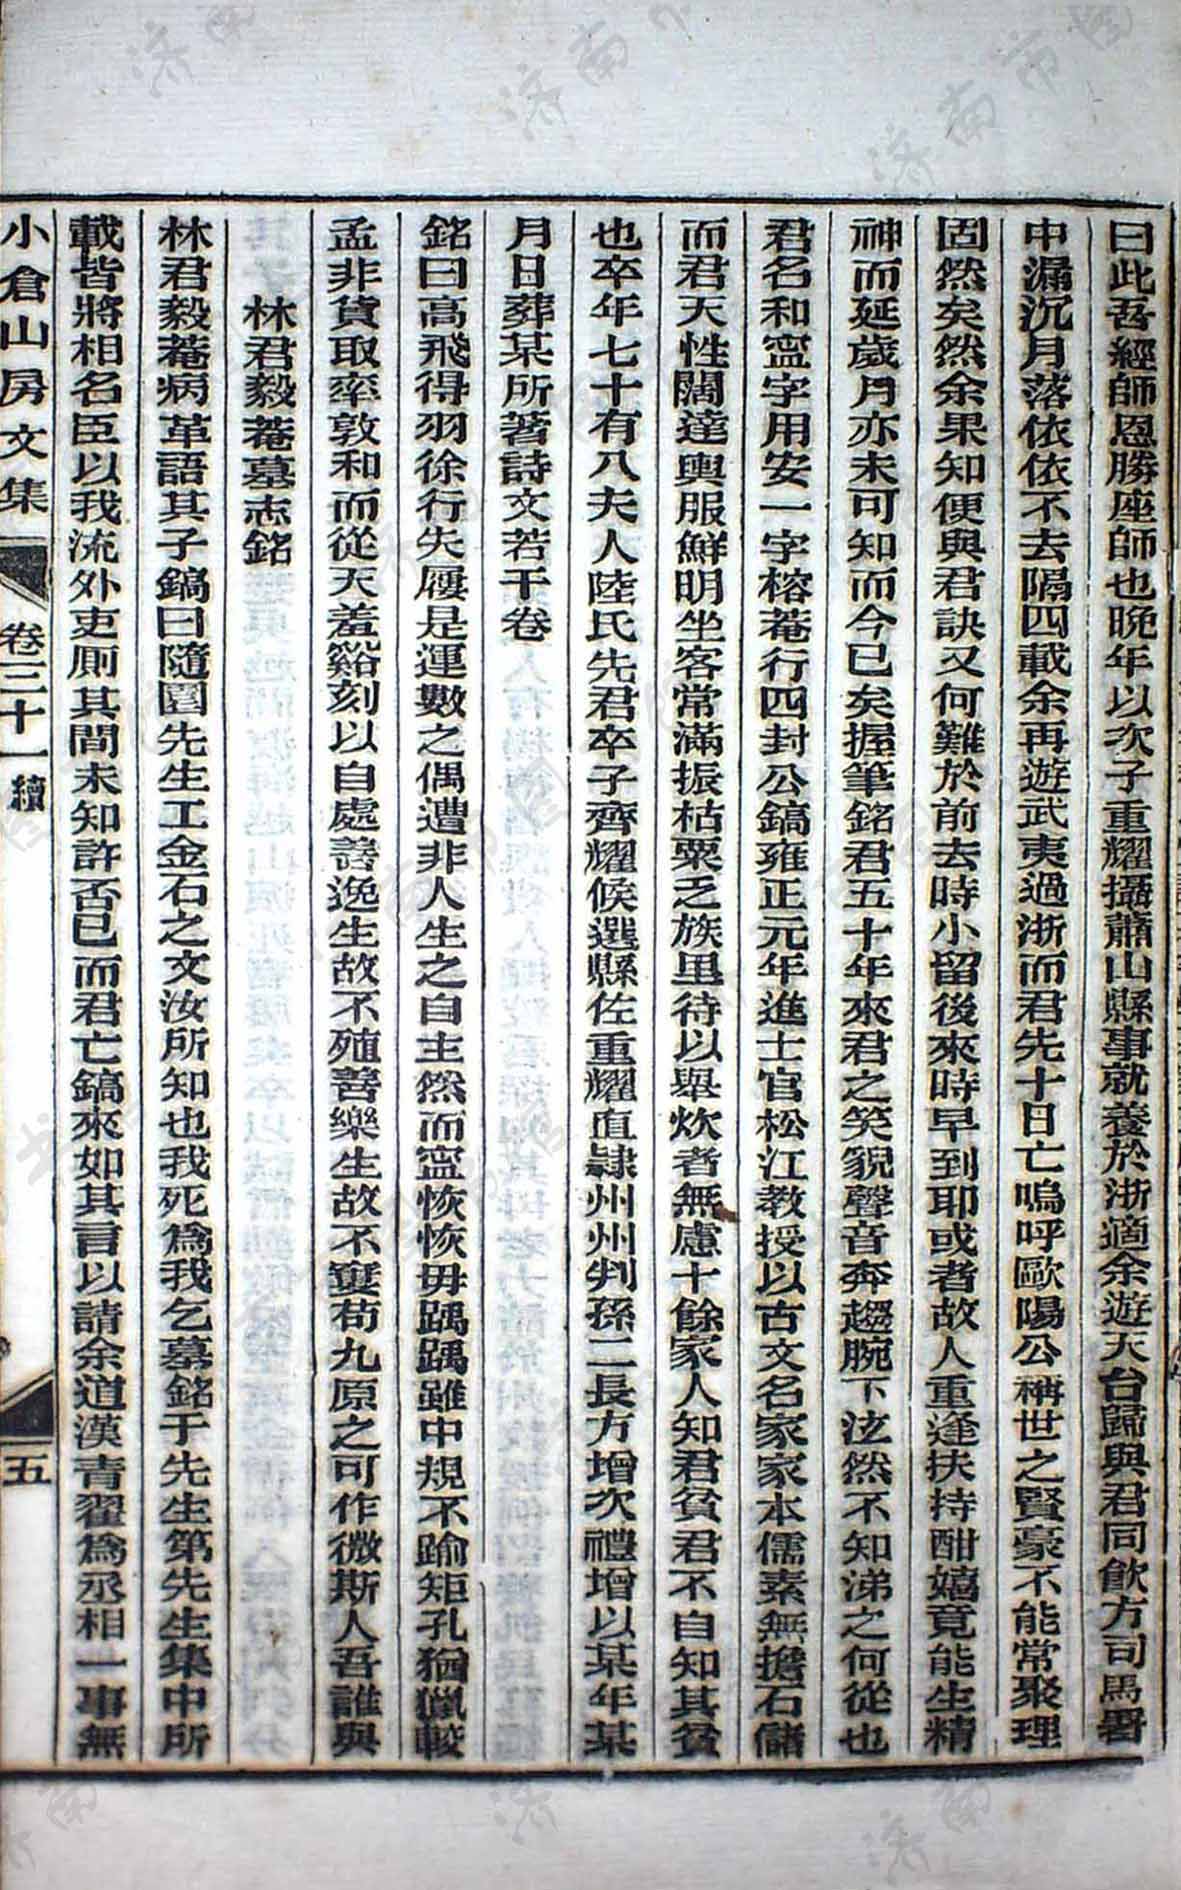 曰此吾經師恩勝座師也晚年以次子重耀攝蕭山縣事就養於浙適余遊天台歸與君同飲方司馬署
中漏沉月落依依不去隔四載余再遊武夷過浙而君先十日亡嗚呼歐陽公稱世之賢豪不能常聚理
固然矣然余果知便與君訣又何難於前去時小留後來時早到耶或者故人重逢扶持酣嬉竟能生精
神而延歲月亦未可知而今已矣握筆銘君五十年來君之笑貌聲音奔趨腕下泫然不知涕之何從也
君名和寍字用安一字榕菴行四封公鎬雍正元年進士官松江教授以古文名家家本儒素無擔石儲
而君天性闊達輿服鮮明坐客常滿振枯粟乏族里待以舉炊者無慮十餘家人知君貧君不自知其貧
也卒年七十有八夫人陸氏先君卒子齊耀候選縣佐重耀直隷州州判孫二長方增次禮增以某年某
月日葬某所著詩文若干卷
銘曰高飛得羽徐行失屨是運數之偶遭非人生之自主然而寍恢恢毋踽踽雖中規不踰矩孔猶獵較
孟非貨取率敦和而從天羞谿刻以自處善逸生故不殖善樂生故不窶苟九原之可作微斯人吾誰與
林君毅菴墓志銘
林君毅菴病革語其子鎬曰隨園先生工金石之文汝所知也我死爲我乞墓銘于先生第先生集中所
載皆將相名臣以我流外吏厠其間未知許否已而君亡鎬來如其言以請余道漢青翟爲丞相一事無
小倉山房文集
卷三十一
續
五
济南市图